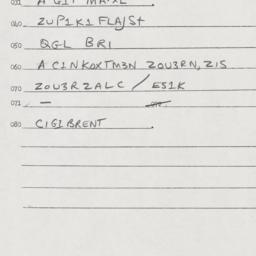 040 ZUP1K1 FLAJSt
050 QGL BRI
060 A C1NKOXTM3N ZOU3RN, ZIS
070 ZOU3RZALC / ES1K
071 —
080 CIGIBRENT